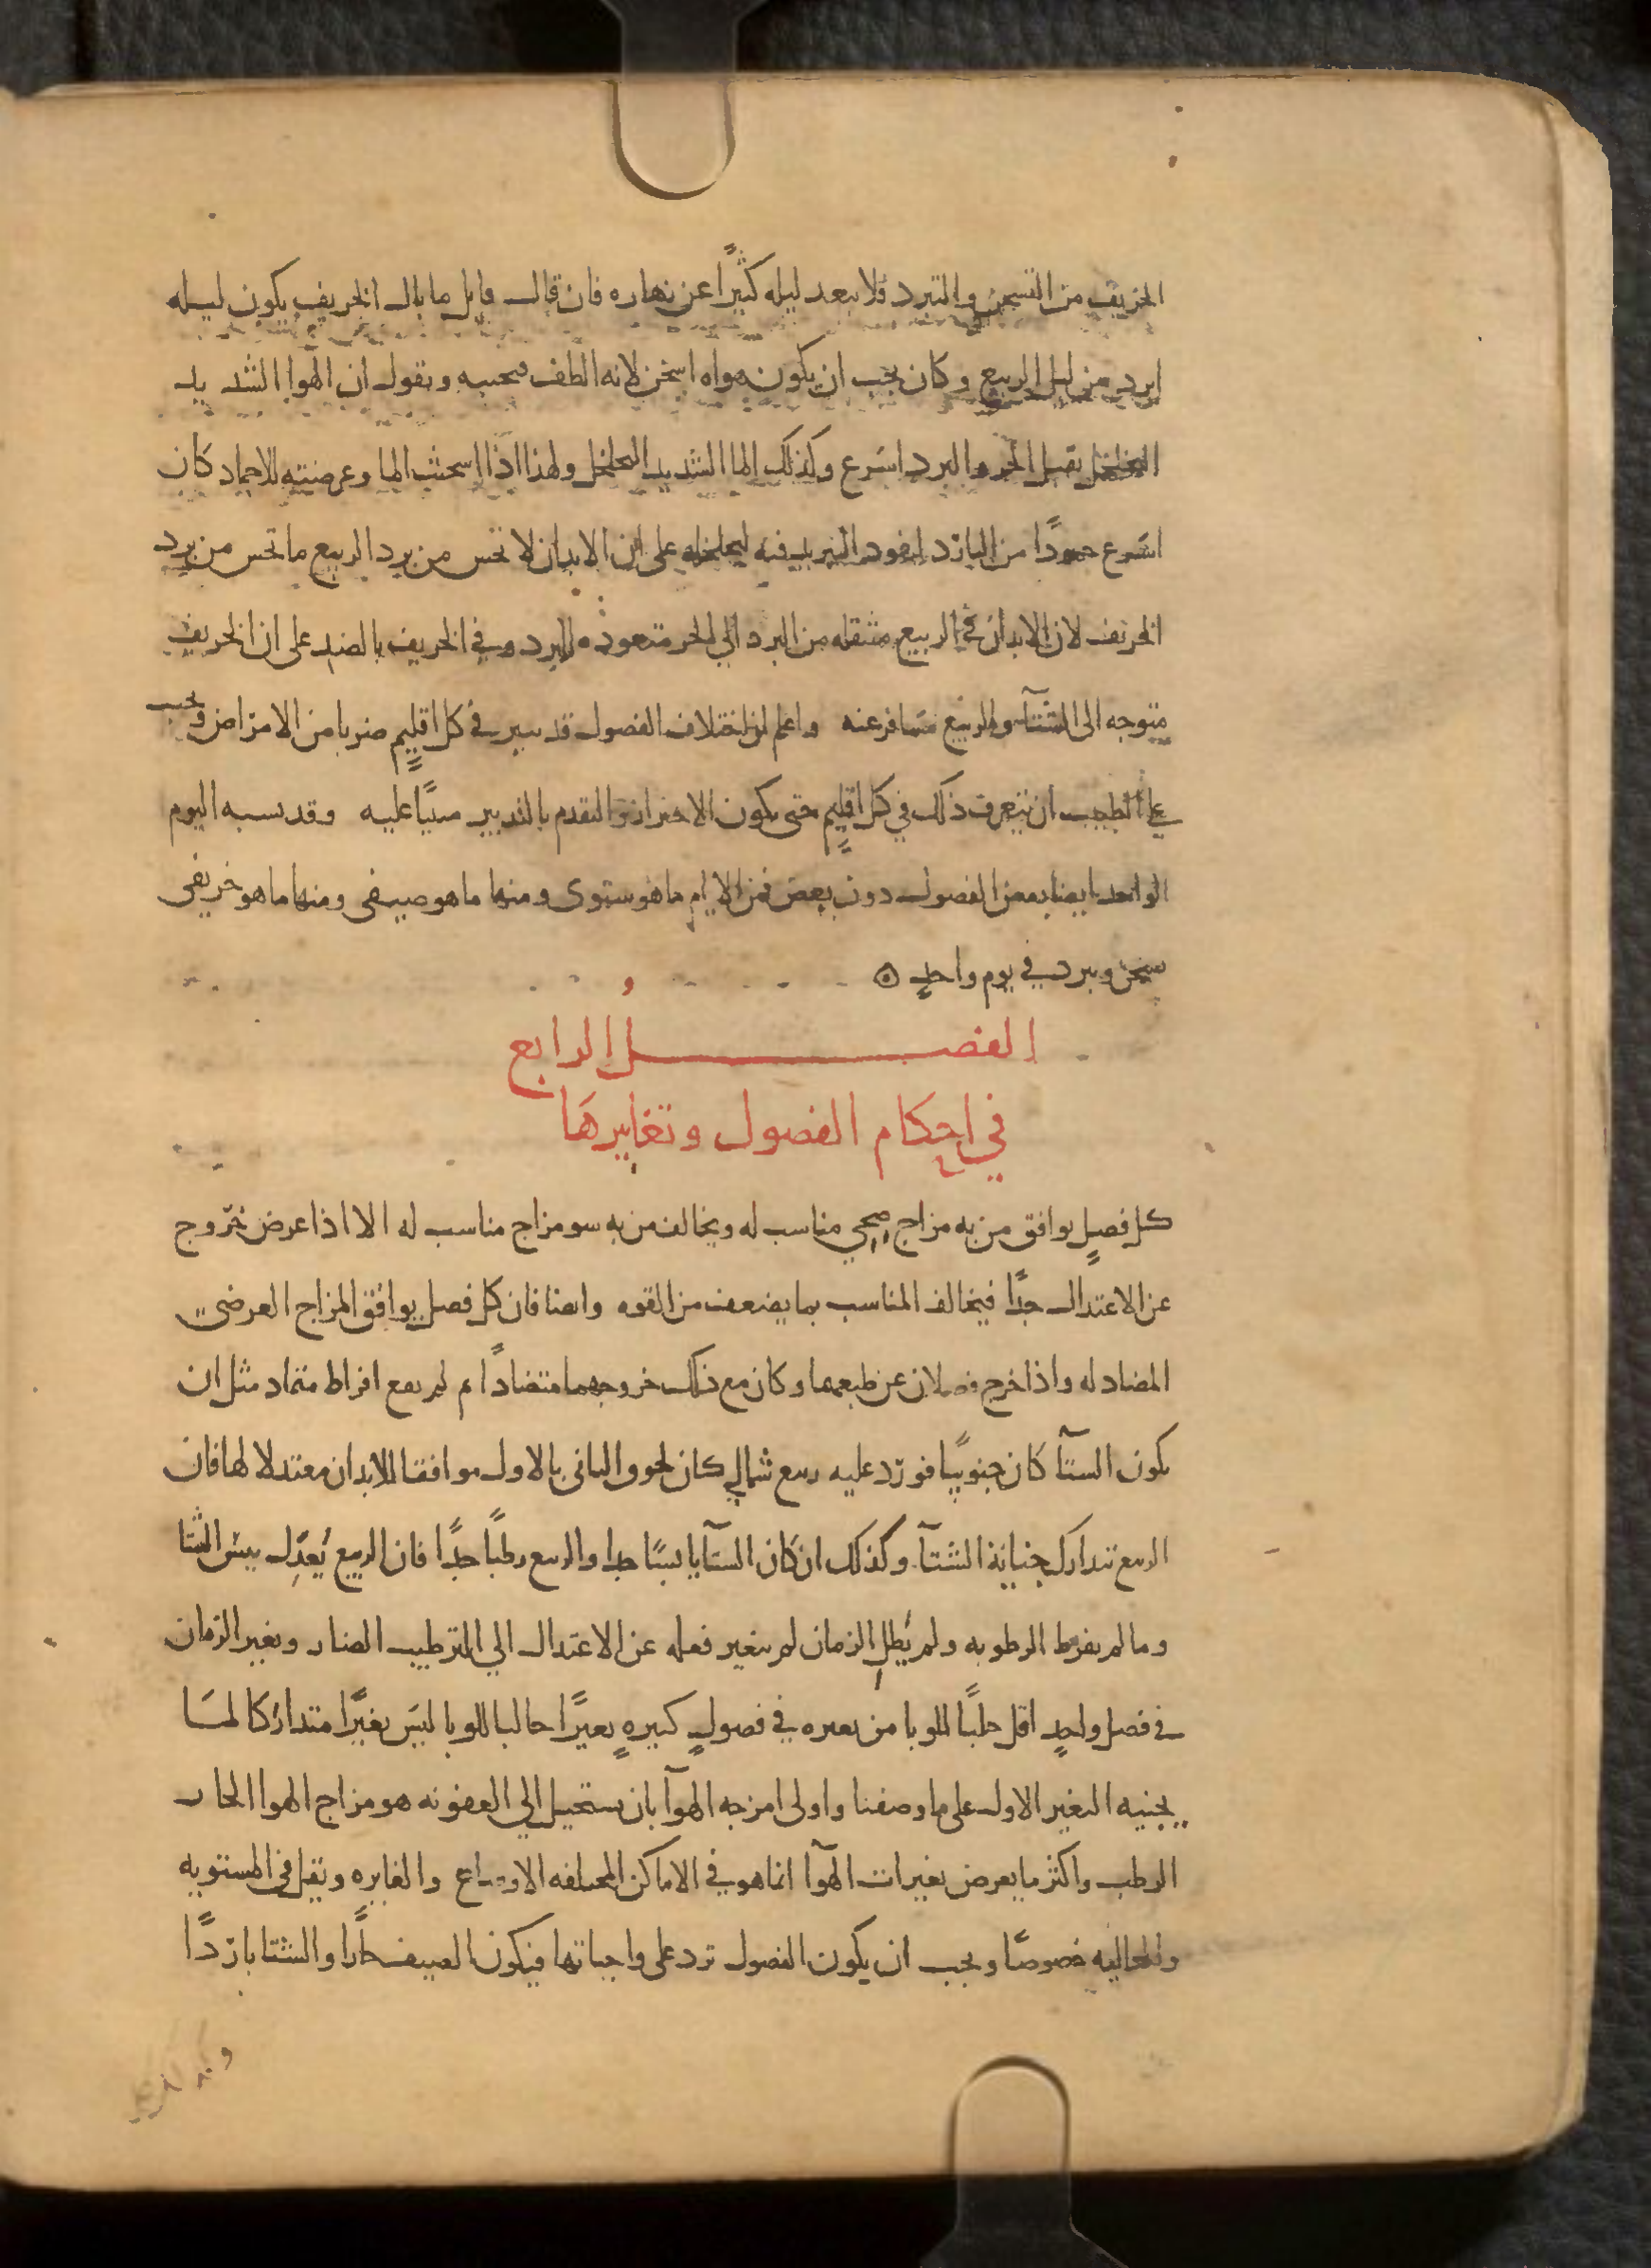 الخريف من التسخن والتبرد فلا يبعد ليله كثيرًا عن نهاره فان قال قايل ما بال الخريف يكون ليله
ابرد من ليل الربيع وكان يجب ان يكون هواه اسخن لانه الطف فنجيبه ونقول ان الهوا الشديد
التخلخل يقبل الحر والبرد اسرع وكذلك الما الشديد التخلخل ولهذا اذا اسخنت الما وعرضته للاجماد كان
اسرع جمودًا من البارد لنفوذ التبريد فيه لتخلخله على ان الابدان لا تحس من برد الربيع ما تحس من برد
الخريف لان الابدان في الربيع منتقله من البرد الي الحر متعوده للبرد وفي الخريف بالضد على ان الخريف
متوجه الى الشتآ والربيع مسافر عنه واعلم ان اختلاف الفصول قد يثير في كل اقليم ضربا من الامراض ويجب
على الطبيب ان يتعرف ذلك في كل اقليم حتى يكون الاحتراز والتقدم بالتدبير مبنيًا عليه وقد يشبه اليوم
الواحد ايضا بعض الفصول دون بعض فمن الايام ما هو شتوى ومنها ما هو صيفى ومنها ما هو خريفى
يسخن ويبرد في يوم واحدٍ
الفصل الرابع
في احكام الفصول وتغايرها
كل فصلٍ يوافق من به مزاج صحي مناسب له ويخالف من به سو مزاج مناسب له الا اذا عرض خروج
عن الاعتدال جدًا فيخالف المناسب بما يضعف من القوه وايضا فان كل فصل يوافق المزاج العرضي
المضاد له واذا خرج فصلان عن طبعهما وكان مع ذلك خروجهما متضادًا ثم لم يقع افراط متماد مثل ان
يكون الشتآ كان جنوبيًا فورد عليه ربيع شمالي كان لحوق الثانى بالاول موافقا للابدان معتدلا لها فان
الربيع تدارك جناية الشتآ وكذلك ان كان الشتآ يابسًا جدا والربيع رطبًا جدًا فان الربيع يُعدِّل يبس الشتا
وما لم يفرط الرطوبه ولم يُطل الزمان لم يتغير فعله عن الاعتدال الي الترطيب الضار وتغير الزمان
في فصل واحدٍ اقل جلبًا للوبا من تغيره في فصولٍ كثيرهٍ تغيرًا جالبا للوبا ليس تغيرًا متداركا لما
يجنيه التغير الاول على ما وصفنا واولى امزجه الهوآ بان يستحيل الي العفونه هو مزاج الهوا الحار
الرطب واكثر ما يعرض تغيرات الهوآ انما هو في الاماكن المختلفه الاوضاع والغايره ويقل في المستويه
والعاليه خصوصًا ويجب ان يكون الفصول ترد على واجباتها فيكون الصيف حارًا والشتا باردًا